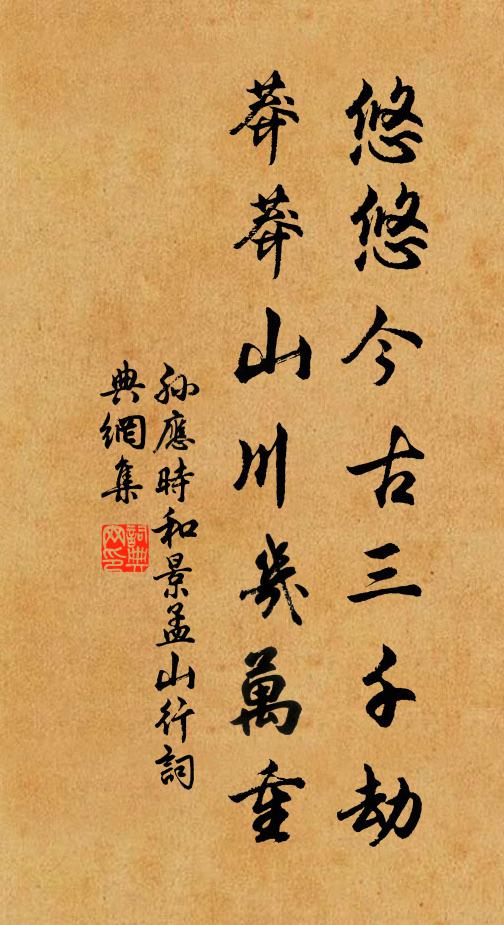 悠悠今古三千劫
莽莽山川幾萬重
孫應時和景孟山行詞
典網集
詞典網印